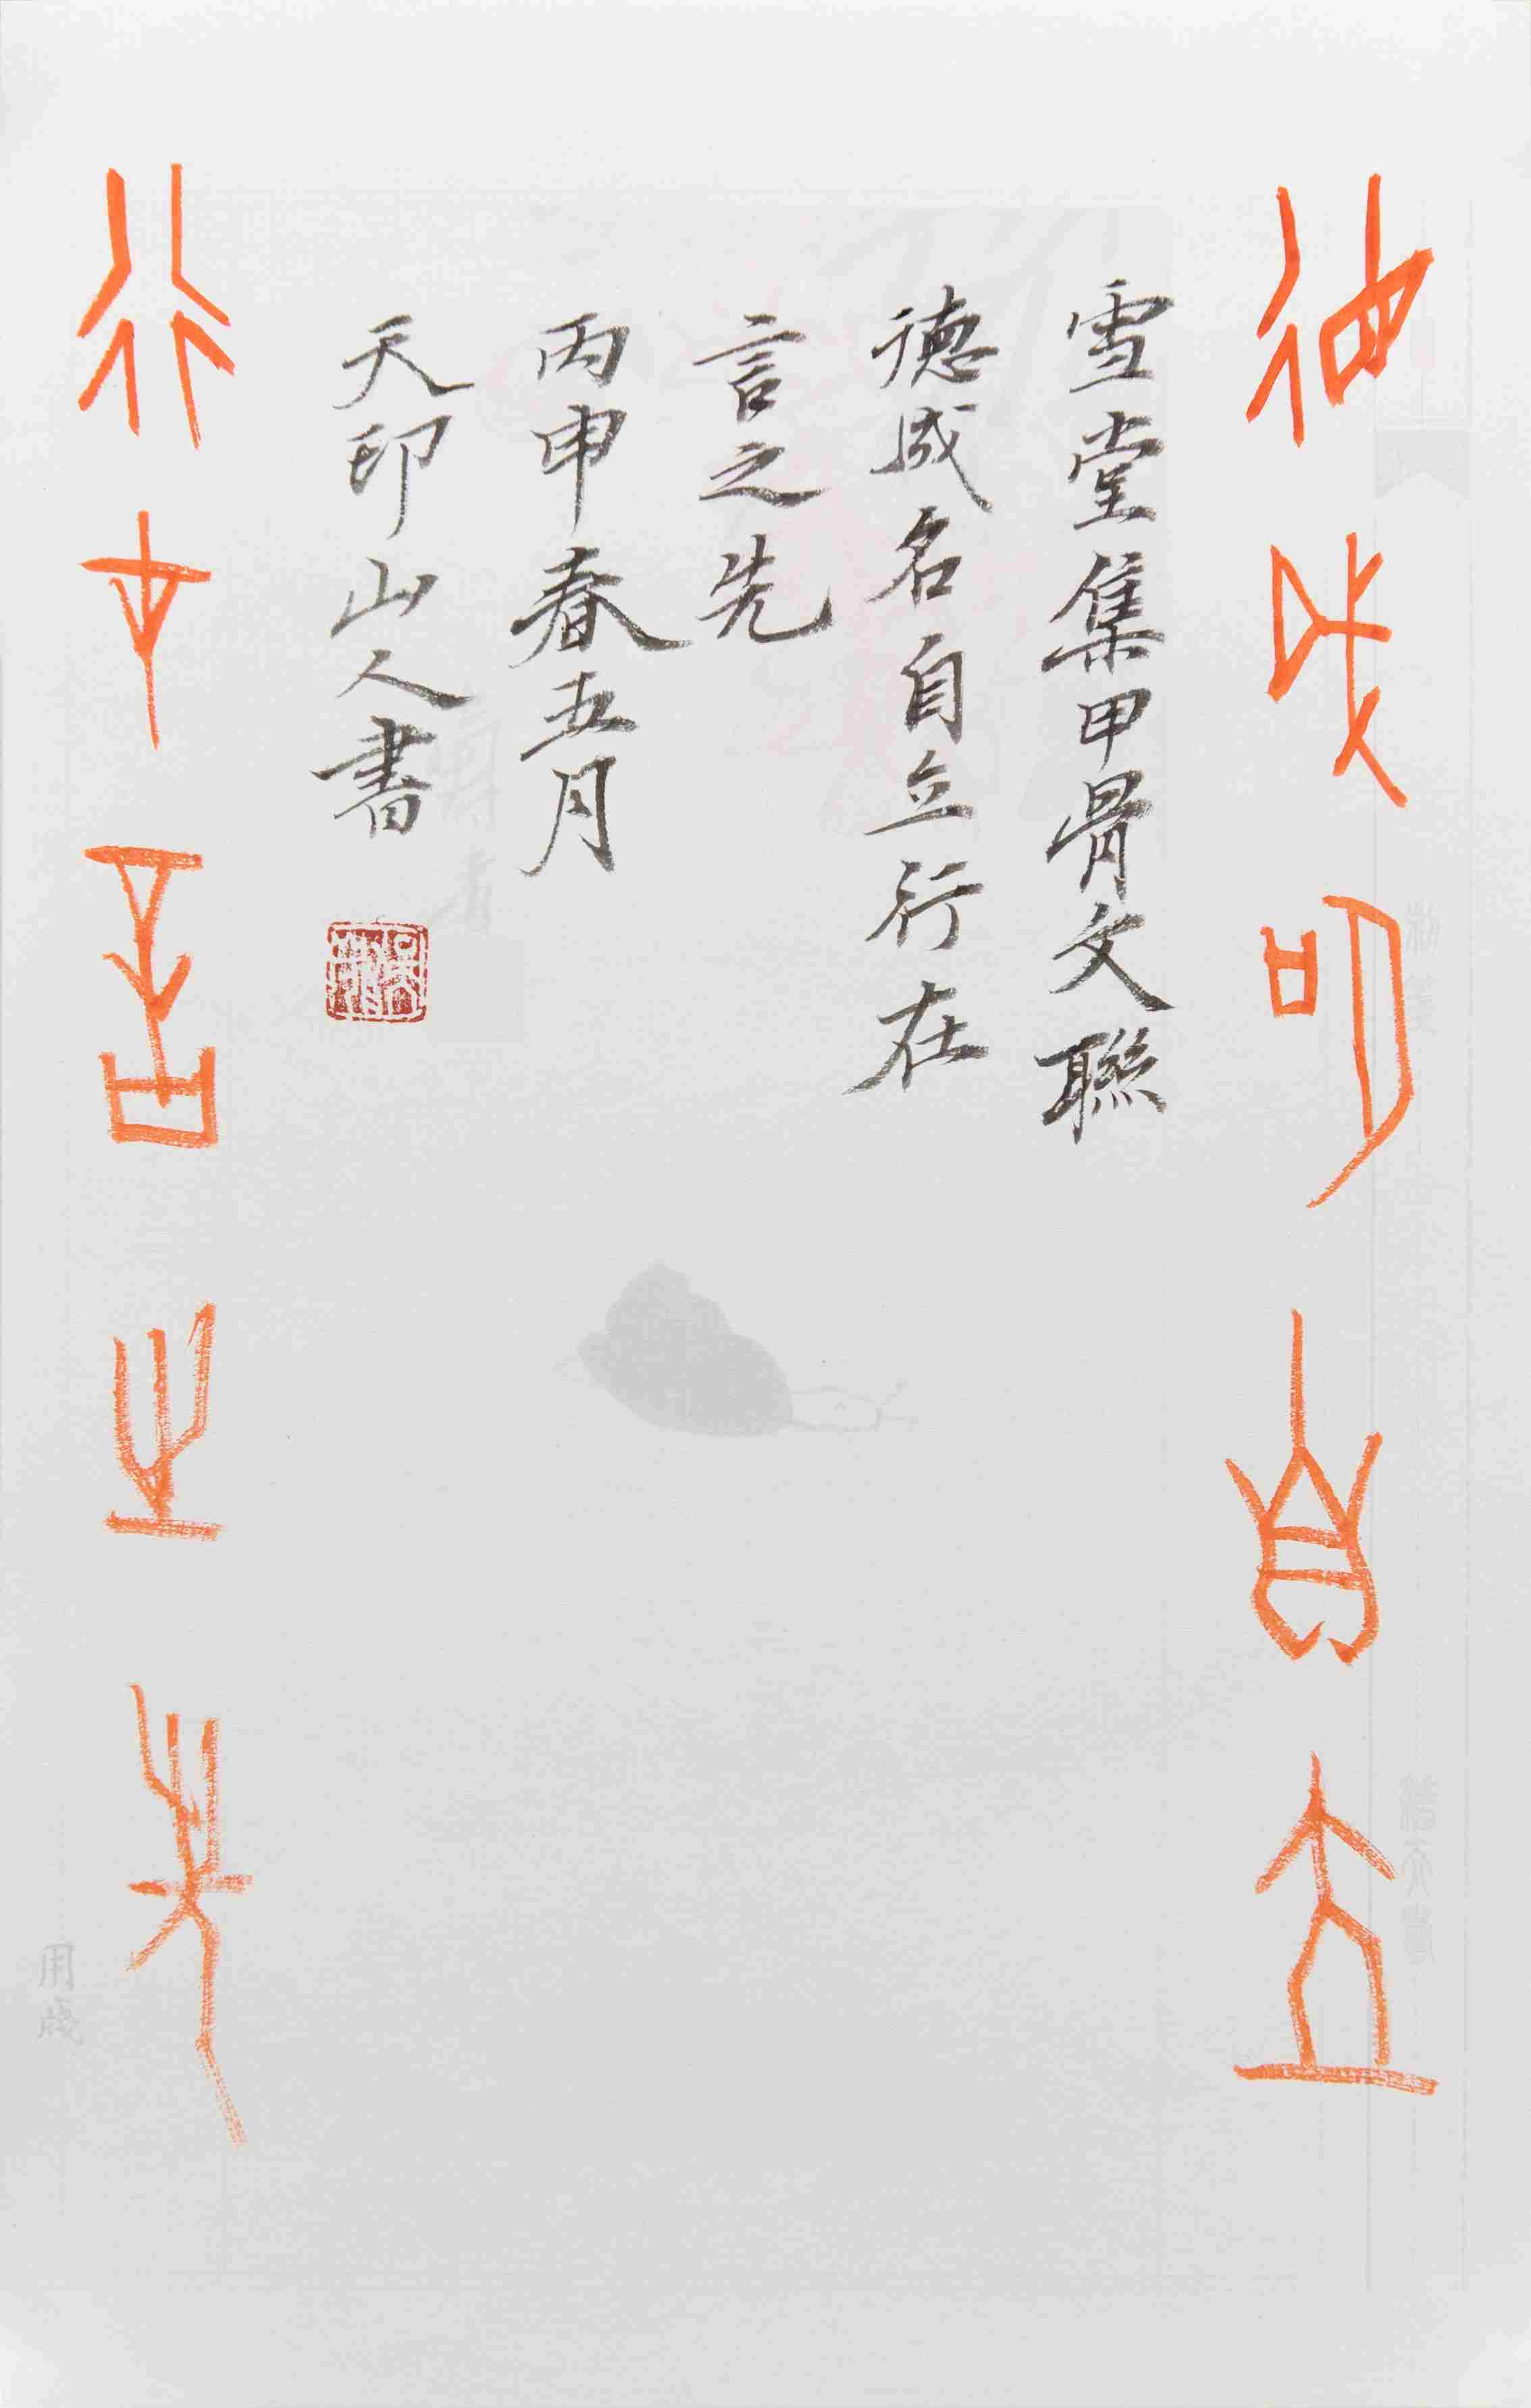 德成名自立
雪堂集甲骨文聯
德成名自立行在
言之先
丙申春五月
天印山人書
行在言之先
用箋